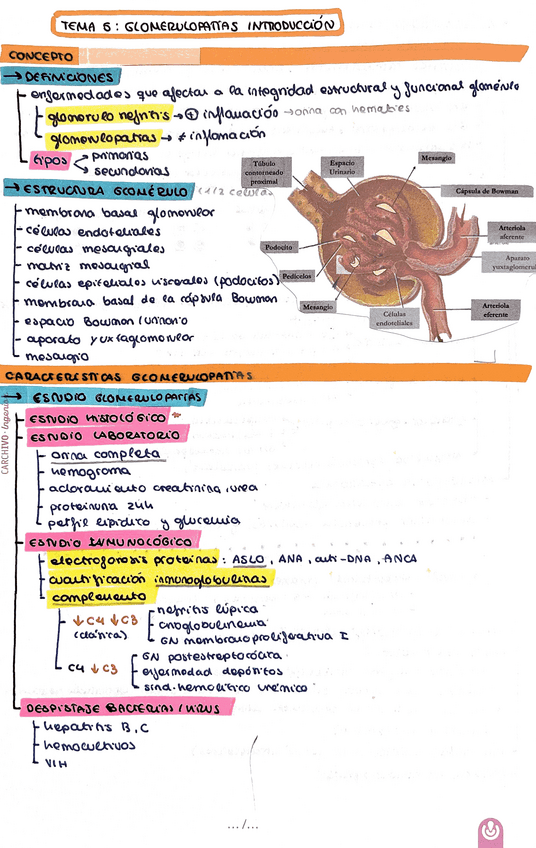 TEMA 6: GLOMERULOPATÍAS INTRODUCCIÓN
CONCEPTO
→ DEFINICIONES
enfermedades que afectan a la integridad estructural y funcional glomérulo
glomerulo nefritis → ⊕ inflamación → orina con hematíes
glomerulopatías → ≠ inflamación
tipos
primarias
secundarias
→ ESTRUCTURA GLOMÉRULO (1/2 células)
membrana basal glomerular
células endoteliales
células mesangiales
matriz mesangial
células epiteliales viscerales (podocitos)
membrana basal de la cápsula Bowman
espacio Bowman/urinario
aparato yuxtaglomerular
mesangio
Túbulo contorneado proximal
Espacio Urinario
Mesangio
Cápsula de Bowman
Arteriola aferente
Podocito
Aparato yuxtaglomerul
Pedicelos
Mesangio
Células endoteliales
Arteriola eferente
CARACTERÍSTICAS GLOMERULOPATÍAS
→ ESTUDIO GLOMERULOPATÍAS
ESTUDIO HISTOLÓGICO *
ESTUDIO LABORATORIO
orina completa
hemograma
aclaramiento creatinina, urea
proteinuria 24h
perfil lipídico y glucemia
ESTUDIO INMUNOLÓGICO
electroforesis proteínas: ASLO, ANA, anti-DNA, ANCA
cuantificación inmunoglobulinas
complemento
↓C4 ↓C3
(clásica)
nefritis lúpica
crioglobulinemia
GN membranoproliferativa I
C4 ↓C3
GN postestreptocócica
enfermedad depósitos
sind. hemolítico urémico
DESPISTAJE BACTERIAS/VIRUS
hepatitis B, C
hemocultivos
VIH
.../...